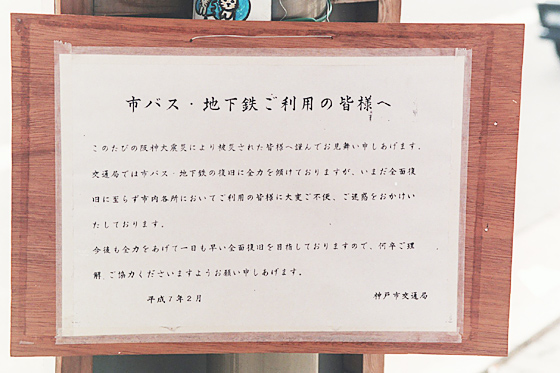 市バス・地下鉄ご利用の皆様へ
このたびの阪神大震災により被災された皆様へ謹んでお見舞い申しあげます。
交通局では市バス・地下鉄の復旧に全力を傾けておりますが、いまだ全面復
旧に至らず市内各所においてご利用の皆様に大変ご不便、ご迷惑をおかけい
たしております。
今後も全力をあげて一日も早い全面復旧を目指しておりますので、何卒ご理
解、ご協力くださいますようお願い申しあげます。
平成7年2月 神戸市交通局